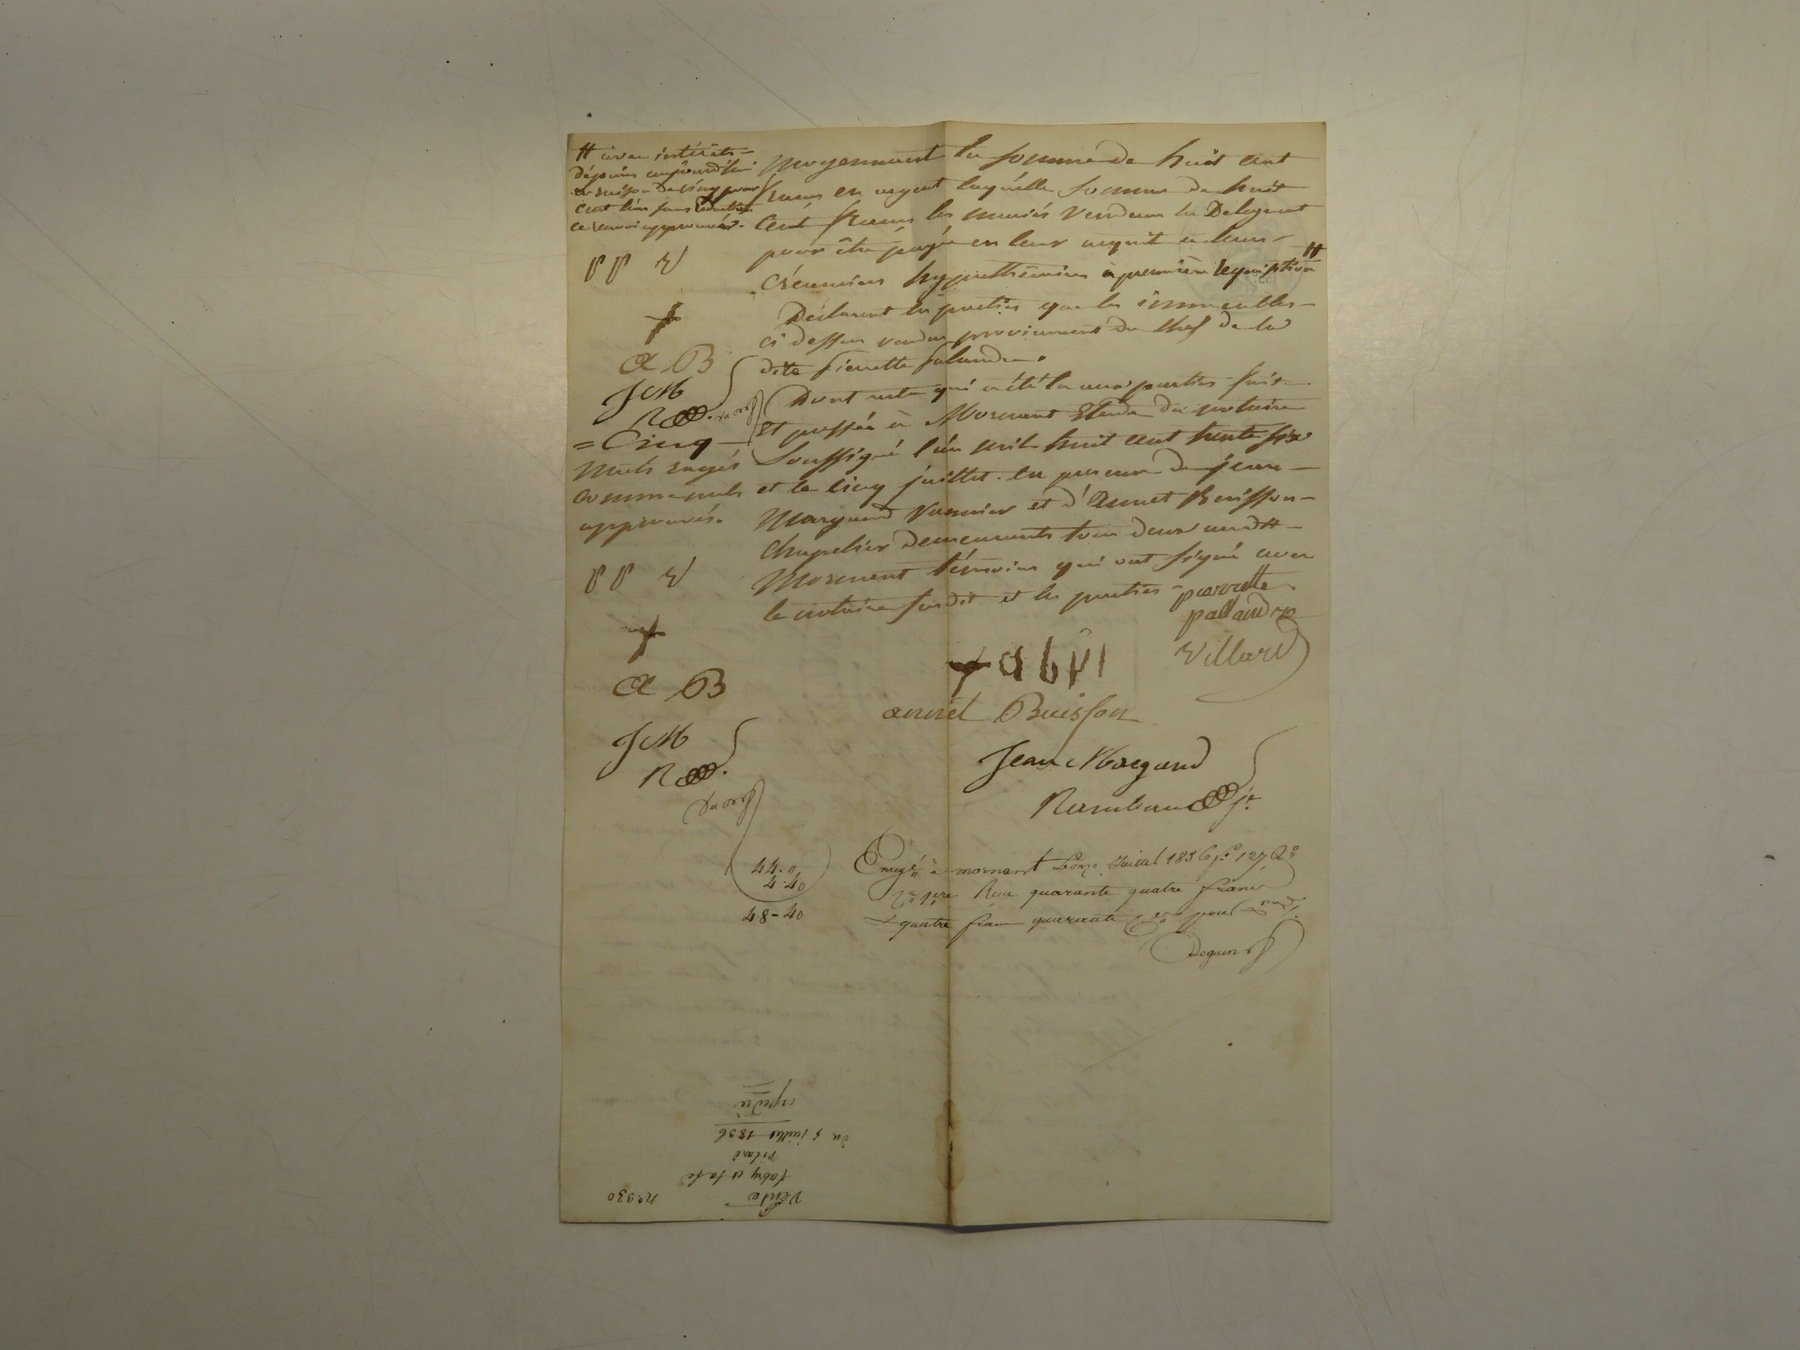 # avec intérêts
dépuis aujourd'hui
en raison de cinq pour
cent l'an sans
ce renvoi approuvé.
PP V
A B
JM
R
= Cinq
mots rayés
comme nuls
approuvés.
PP V
A B
JM
R
moyennant la somme de huit cent
francs en argent laquelle somme de huit
cent francs les mariés vendeurs la Deleguent
pour être payée en leur acquit à leurs
créanciers hypothécaires à première requisition #
Déclarent les parties que les immeubles
ci dessus vendus proviennent du chef de la
dite Pierrette palandre.
Dont acte qui a été lu aux parties fait
et passée à Mornant Etude du notaire
soussigné l'an mil huit cent trente six
et le cinq juillet en présence de jean
Margand vannier et d'Annet Buisson
chapelier demeurants tous deux audit
Mornant témoins qui ont signé avec
le notaire susdit et les parties
pierrette
pallandre
Villard
annet Buisson
Jean Margand
Rambaud
44. "
4. 40
48 - 40
à mornant juillet 1836 f° 127
Reçu quarante quatre francs
& quatre francs quarante pour
Vente n° 330
fabry et sa fe
Vilard
du 5 juillet 1836
expédié